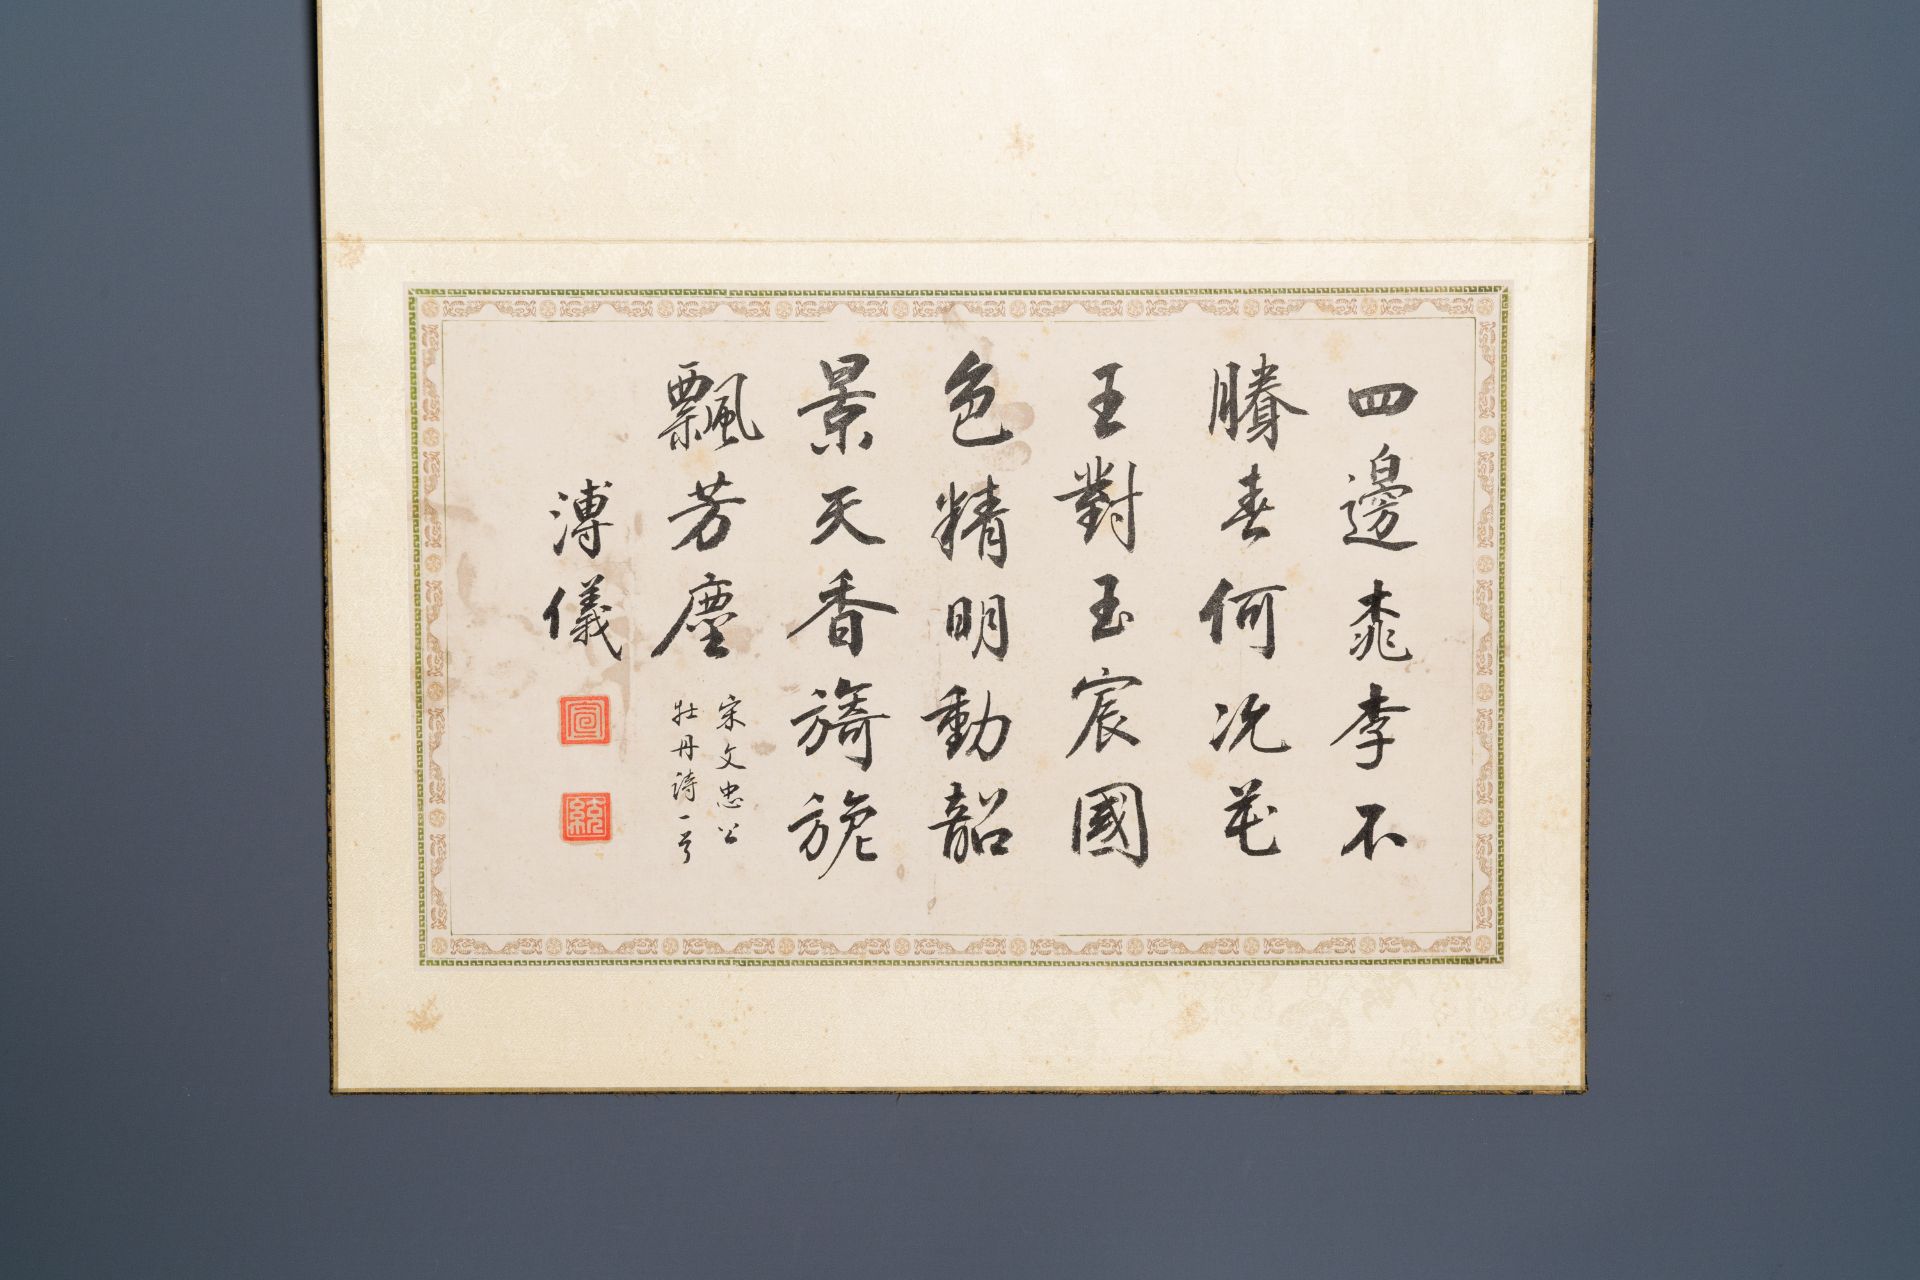 四邊桃李不
勝春何況花
王對玉宸國
色精明動韶
景天香旖旎
飄芳塵
宋文忠公
牡丹詩一首
溥儀
宣
統